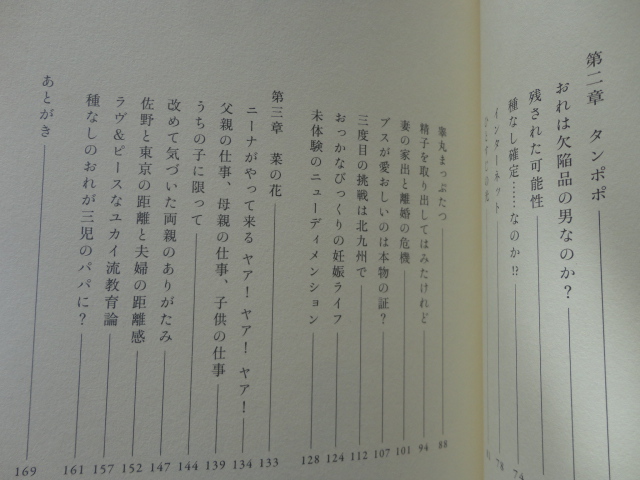 第二章 タンポポ
おれは欠陥品の男なのか?
残された可能性
種なし確定……なのか!? 74
インターネット 78
睾丸まっぷたつ 88
精子を取り出してはみたけれど 94
妻の家出と離婚の危機 101
ブスが愛おしいのは本物の証? 107
三度目の挑戦は北九州で 112
おっかなびっくりの妊娠ライフ 124
未体験のニューディメンション 128
第三章 菜の花 133
ニーナがやって来る ヤァ!ヤァ!ヤァ! 134
父親の仕事、母親の仕事、子供の仕事 139
うちの子に限って 144
改めて気づいた両親のありがたみ 147
佐野と東京の距離と夫婦の距離感 152
ラヴ&ピースなユカイ流教育論 157
種なしのおれが三児のパパに? 161
あとがき 169